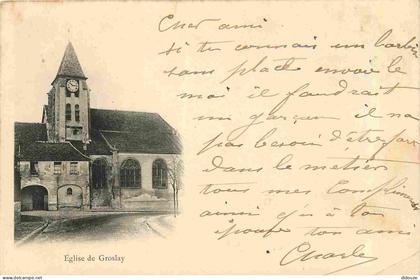 Cher ami
si tu connais un barbier
sans place envoie le
moi il faudrait
un garçon il n'a
pas besoin d'être fort
dans le métier
tous mes compliments
ainsi qu'à ton
épouse ton ami
Charles
Eglise de Groslay